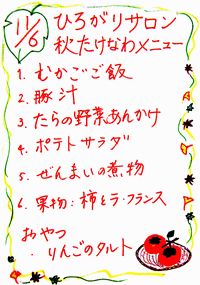 11/6
ひろがりサロン
秋たけなわメニュー
1. むかごご飯
2. 豚汁
3. たらの野菜あんかけ
4. ポテトサラダ
5. ぜんまいの煮物
6. 果物:柿とラ・フランス
おやつ
・りんごのタルト